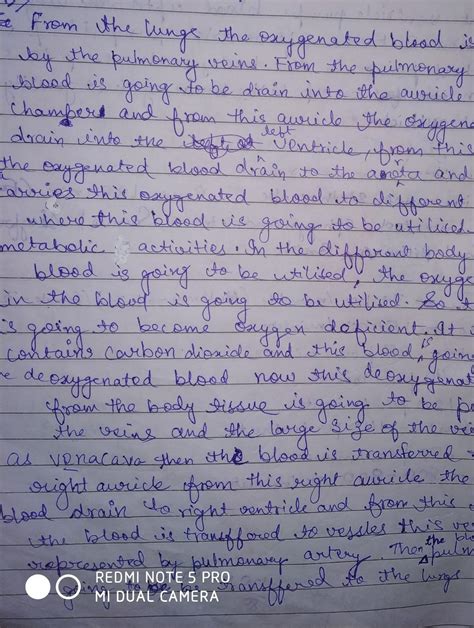 From the lungs the oxygenated blood is
by the pulmonary veins. From the pulmonary
blood is going to be drain into the auricle
chamber and from this auricle the oxygena
drain into the left ventricle, from this
the oxygenated blood drain to the aorta and
carries this oxygenated blood to different
where this blood is going to be utilised
metabolic activities. In the different body
blood is going to be utilised, the oxyge
in the blood is going to be utilised. So
is going to become oxygen deficient. It
contains carbon dioxide and this blood is goin
deoxygenated blood now this deoxygenat
from the body tissue is going to be
the veins and the large size of the vei
as venacava then the blood is transferred
right auricle from this right auricle the
blood drain to right ventricle and from this
the blood is transffored to vessles this ve
represented by pulmonary artery. Then the pulm
going to be transffered to the lungs
REDMI NOTE 5 PRO
MI DUAL CAMERA